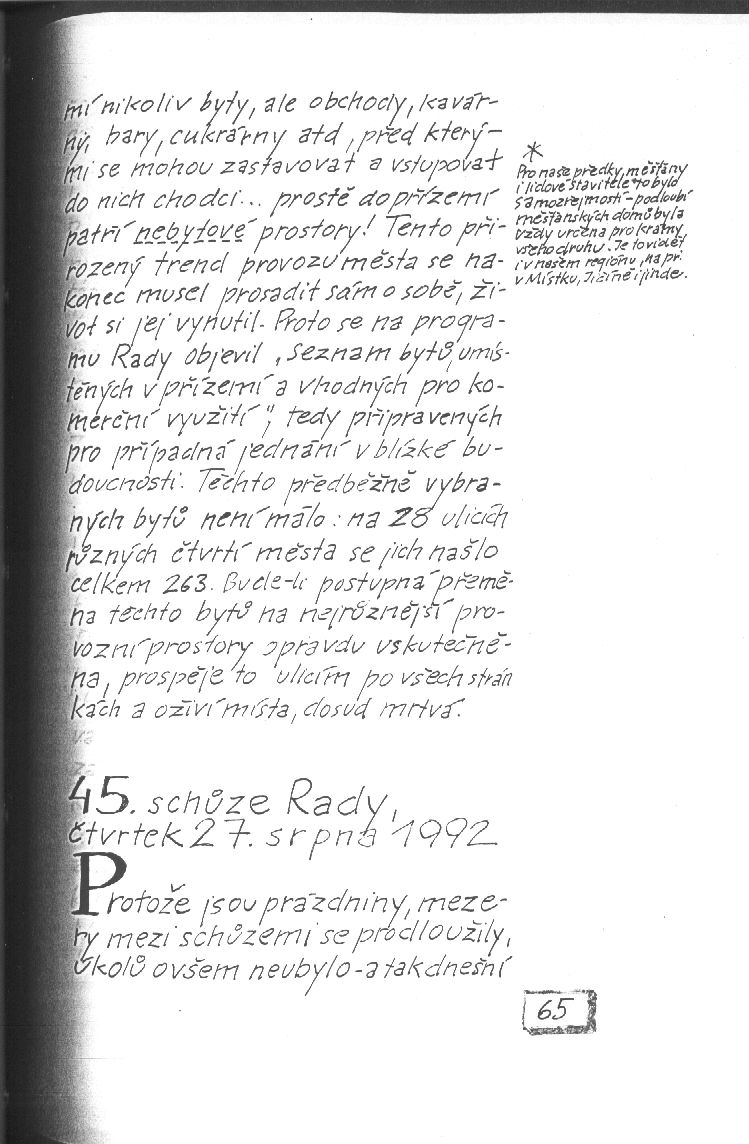 mí nikoliv byty, ale obchody, kavár-
ny, bary, cukrárny atd, před který-
mi se mohou zastavovat a vstupovat
do nich chodci... prostě do přízemí
patří nebytové prostory! Tento při-
rozený trend provozu města se na-
konec musel prosadit sám o sobě, ži-
vot si jej vynutil. Proto se na progra-
mu Rady objevil „Seznam bytů, umís-
těných v přízemí a vhodných pro ko-
merční využití", tedy připravených
pro případná jednání v blízké bu-
doucnosti. Těchto předběžně vybra-
ných bytů není málo: na 28 ulicích
různých čtvrtí města se jich našlo
celkem 263. Bude-li postupná přemě-
na těchto bytů na nejrůznější pro-
vozní prostory opravdu uskutečně-
na, prospěje to ulicím po všech strán
kách a oživí místa, dosud mrtvá.
*
Pro naše předky, měšťany
i lidové stavitele to bylo
samozřejmostí - podloubí
měšťanských domů byla
vždy určena pro krámy
všeho druhu. Je to vidět
i v našem regionu, na př.
v Místku, Jičíně i jinde.
45. schůze Rady,
čtvrtek 27. srpna 1992
Protože jsou prázdniny, meze-
ry mezi schůzemi se prodloužily,
úkolů ovšem neubylo - a tak dnešní
65